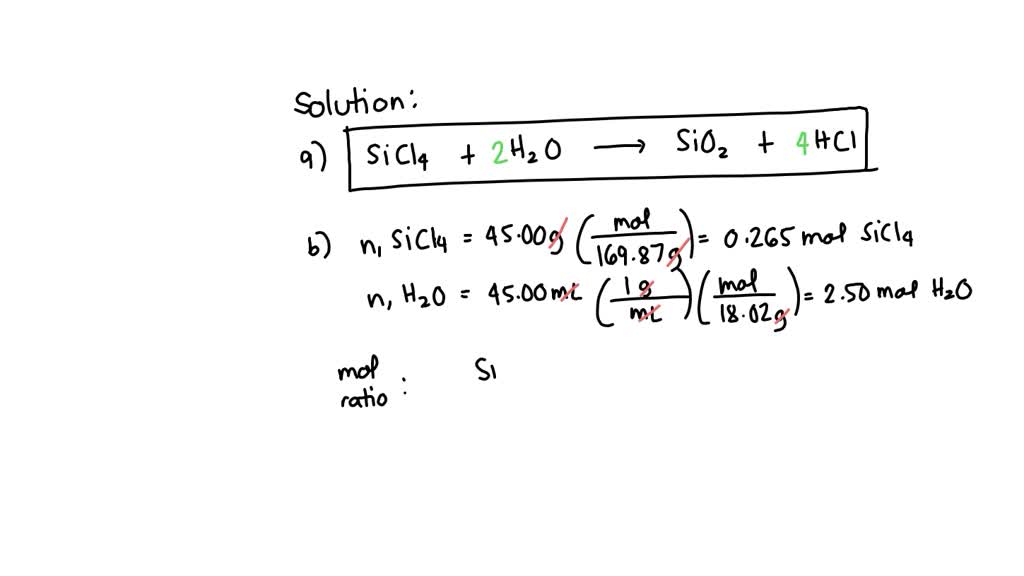 Solution:
a) SiCl₄ + 2H₂O ⟶ SiO₂ + 4HCl
b) n, SiCl₄ = 45.00g (mol/169.87g) = 0.265 mol SiCl₄
n, H₂O = 45.00mL (1g/mL)(mol/18.02g) = 2.50 mol H₂O
mol ratio: Si